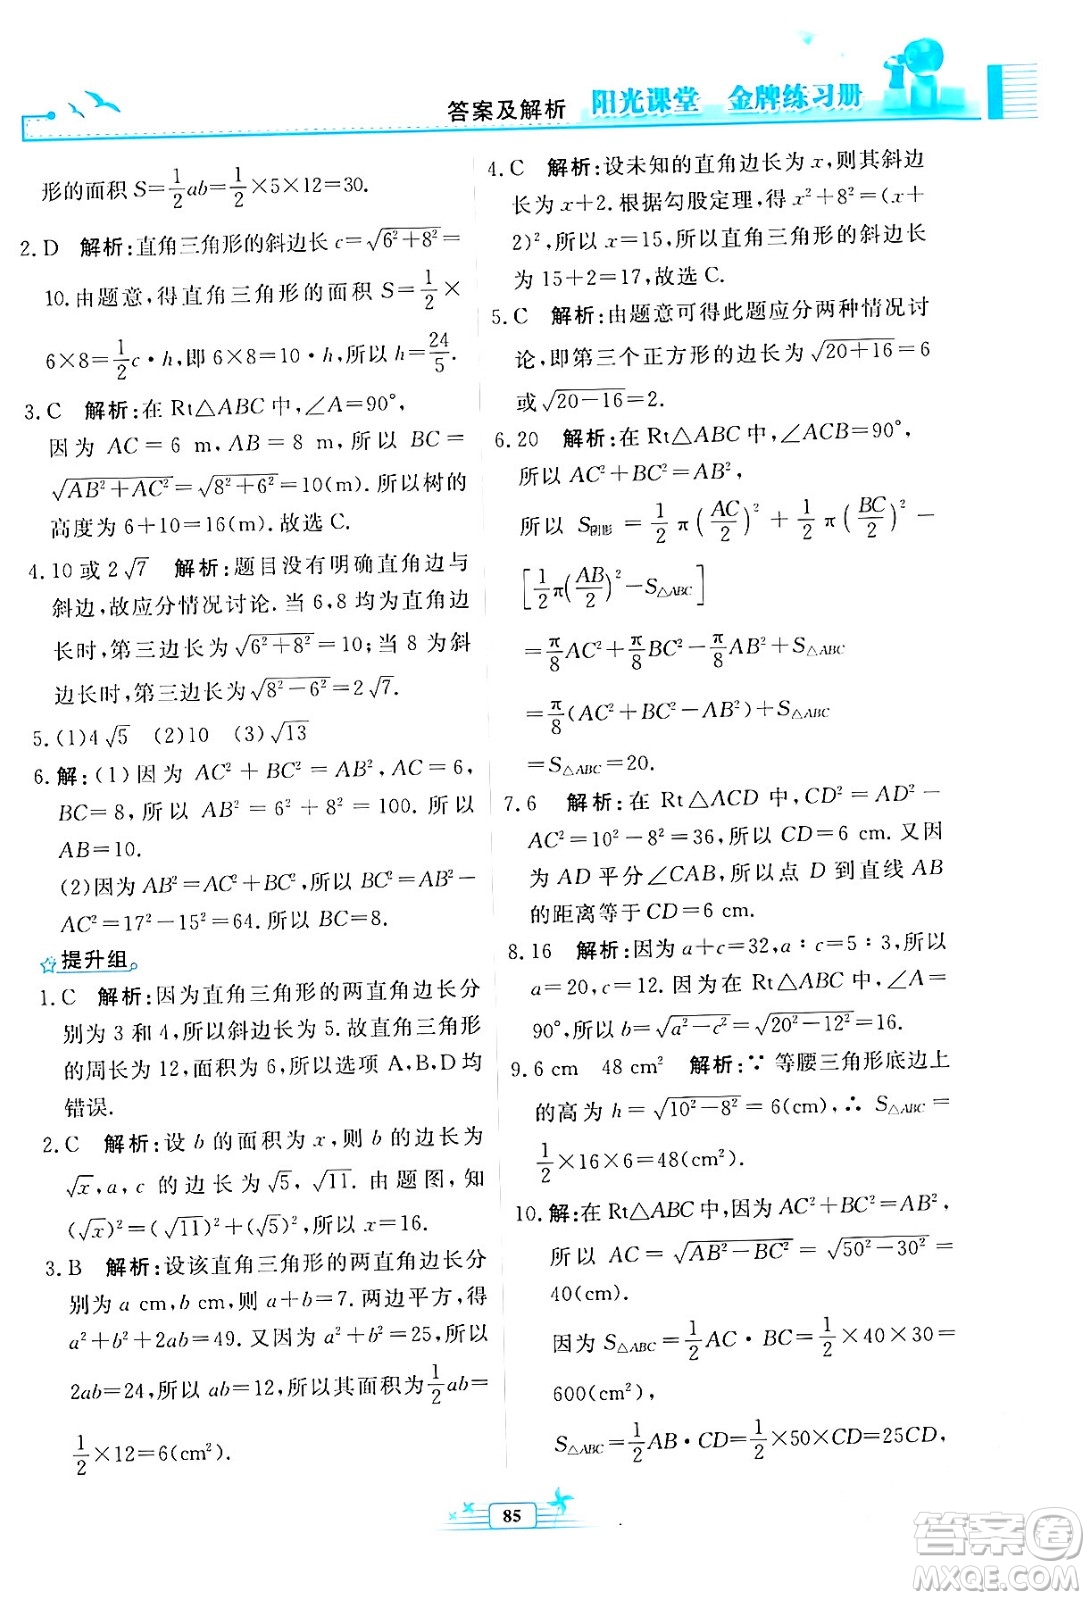 答案及解析 阳光课堂 金牌练习册
形的面积 S=\frac{1}{2}ab=\frac{1}{2}×5×12=30.
2. D 解析:直角三角形的斜边长 c=\sqrt{6²+8²}=
10.由题意,得直角三角形的面积 S=\frac{1}{2}×
6×8=\frac{1}{2}c·h,即 6×8=10·h,所以 h=\frac{24}{5}.
3. C 解析:在 Rt△ABC 中,∠A=90°,
因为 AC=6 m,AB=8 m,所以 BC=
\sqrt{AB²+AC²}=\sqrt{8²+6²}=10(m).所以树的
高度为 6+10=16(m).故选 C.
4. 10 或 2\sqrt{7} 解析:题目没有明确直角边与
斜边,故应分情况讨论.当 6,8 均为直角边
长时,第三边长为\sqrt{6²+8²}=10;当 8 为斜
边长时,第三边长为\sqrt{8²-6²}=2\sqrt{7}.
5. (1)4\sqrt{5} (2)10 (3)\sqrt{13}
6. 解:(1)因为 AC²+BC²=AB²,AC=6,
BC=8,所以 AB²=6²+8²=100.所以
AB=10.
(2)因为 AB²=AC²+BC²,所以 BC²=AB²-
AC²=17²-15²=64.所以 BC=8.
提升组
1. C 解析:因为直角三角形的两直角边长分
别为 3 和 4,所以斜边长为 5.故直角三角形
的周长为 12,面积为 6,所以选项 A,B,D 均
错误.
2. C 解析:设 b 的面积为 x,则 b 的边长为
\sqrt{x},a,c 的边长为\sqrt{5},\sqrt{11}.由题图,知
(\sqrt{x})²=(\sqrt{11})²+(\sqrt{5})²,所以 x=16.
3. B 解析:设该直角三角形的两直角边长分
别为 a cm,b cm,则 a+b=7.两边平方,得
a²+b²+2ab=49.又因为 a²+b²=25,所以
2ab=24,所以 ab=12,所以其面积为\frac{1}{2}ab=
\frac{1}{2}×12=6(cm²).
4. C 解析:设未知的直角边长为 x,则其斜边
长为 x+2.根据勾股定理,得 x²+8²=(x+
2)²,所以 x=15,所以直角三角形的斜边长
为 15+2=17,故选 C.
5. C 解析:由题意可得此题应分两种情况讨
论,即第三个正方形的边长为\sqrt{20+16}=6
或\sqrt{20-16}=2.
6. 20 解析:在 Rt△ABC 中,∠ACB=90°,
所以 AC²+BC²=AB²,
所以 S阴影=\frac{1}{2}π(\frac{AC}{2})²+\frac{1}{2}π(\frac{BC}{2})²-
[\frac{1}{2}π(\frac{AB}{2})²-S△ABC]
=\frac{π}{8}AC²+\frac{π}{8}BC²-\frac{π}{8}AB²+S△ABC
=\frac{π}{8}(AC²+BC²-AB²)+S△ABC
=S△ABC=20.
7. 6 解析:在 Rt△ACD 中,CD²=AD²-
AC²=10²-8²=36,所以 CD=6 cm.又因
为 AD 平分∠CAB,所以点 D 到直线 AB
的距离等于 CD=6 cm.
8. 16 解析:因为 a+c=32,a∶c=5∶3,所以
a=20,c=12.因为在 Rt△ABC 中,∠A=
90°,所以 b=\sqrt{a²-c²}=\sqrt{20²-12²}=16.
9. 6 cm 48 cm² 解析:∵等腰三角形底边上
的高为 h=\sqrt{10²-8²}=6(cm),∴S△ABC=
\frac{1}{2}×16×6=48(cm²).
10. 解:在 Rt△ABC 中,因为 AC²+BC²=AB²,
所以 AC=\sqrt{AB²-BC²}=\sqrt{50²-30²}=
40(cm).
因为 S△ABC=\frac{1}{2}AC·BC=\frac{1}{2}×40×30=
600(cm²),
S△ABC=\frac{1}{2}AB·CD=\frac{1}{2}×50×CD=25CD,
85
答案圈
MXQE.COM